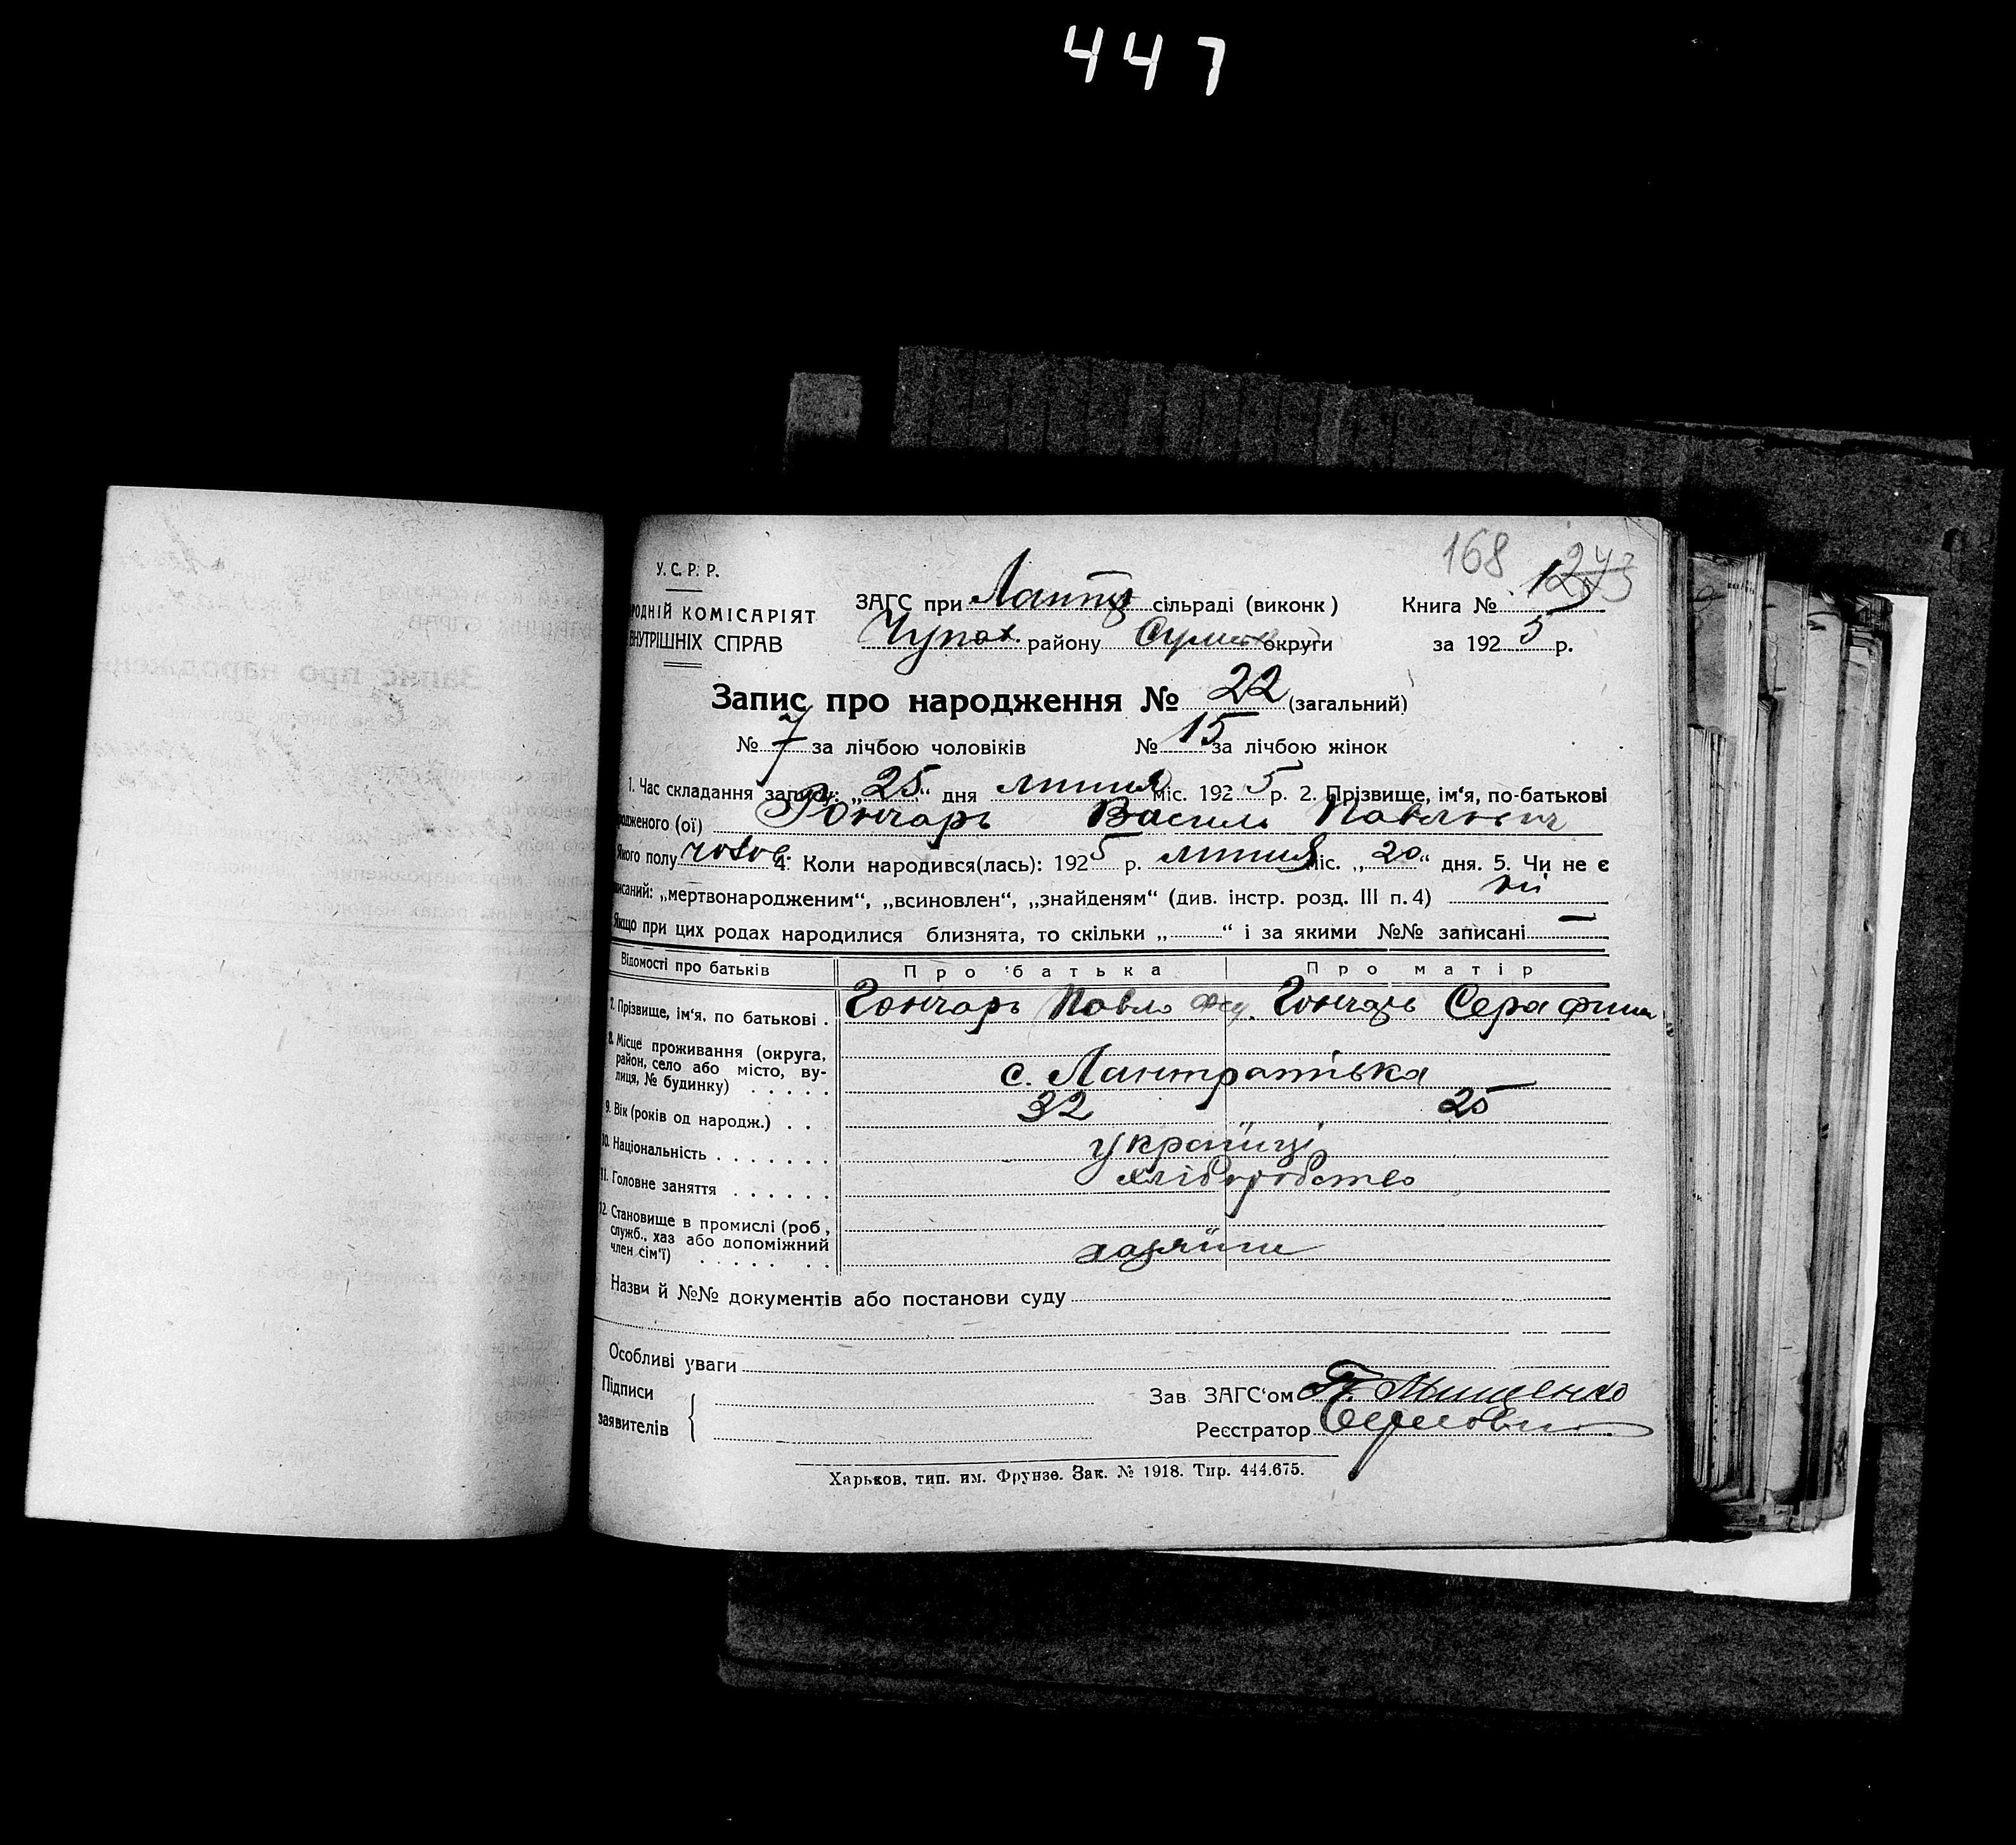 447
168
У.С.Р.Р.
РОДНІЙ КОМІСАРІЯТ
ВНУТРІШНІХ СПРАВ
ЗАГС при сільраді (виконк)
Книга №
Чупах. району Сумськ округи
за 1925 р.
Запис про народження № 22 (загальний)
№ 7 за лічбою чоловіків № 15 за лічбою жінок
1. Час складання запису: „25“ дня липня міс. 1925 р. 2. Прізвище, ім'я, по-батькові
родженого (ої) Гончарь Василь Павлович
Якого полу чолов. 4. Коли народився(лась): 1925 р. липня міс. „20“ дня. 5. Чи не є
писаний: „мертвонародженим“, „всиновлен“, „знайденям“ (див. інстр. розд. III п. 4) ні
Якщо при цих родах народилися близнята, то скільки „ “ і за якими №№ записані —
Відомості про батьків
Про батька
Про матір
7. Прізвище, ім'я, по батькові .
Гончарь Павло
Гончарь Серафима
8. Місце проживання (округа, район, село або місто, ву-
лиця, № будинку) . . . . .
с. Лантратівка
9. Вік (років од народж.) . . .
32
25
10. Національність . . . . . . .
українці
11. Головне заняття . . . . . .
хліборобство
12. Становище в промислі (роб,
служб., хаз або допоміжний
член сім'ї) . . . . . . .
хазяїни
Назви й №№ документів або постанови суду
Особливі уваги
Підписи
заявителів
Зав ЗАГС'ом П. Мищенко
Реєстратор
Харьков, тип. им. Фрунзе. Зак. № 1918. Тир. 444.675.